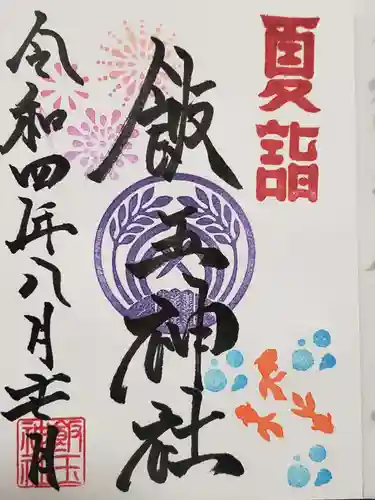 夏詣
飯玉神社
令和四年八月壱日
飯玉
神社